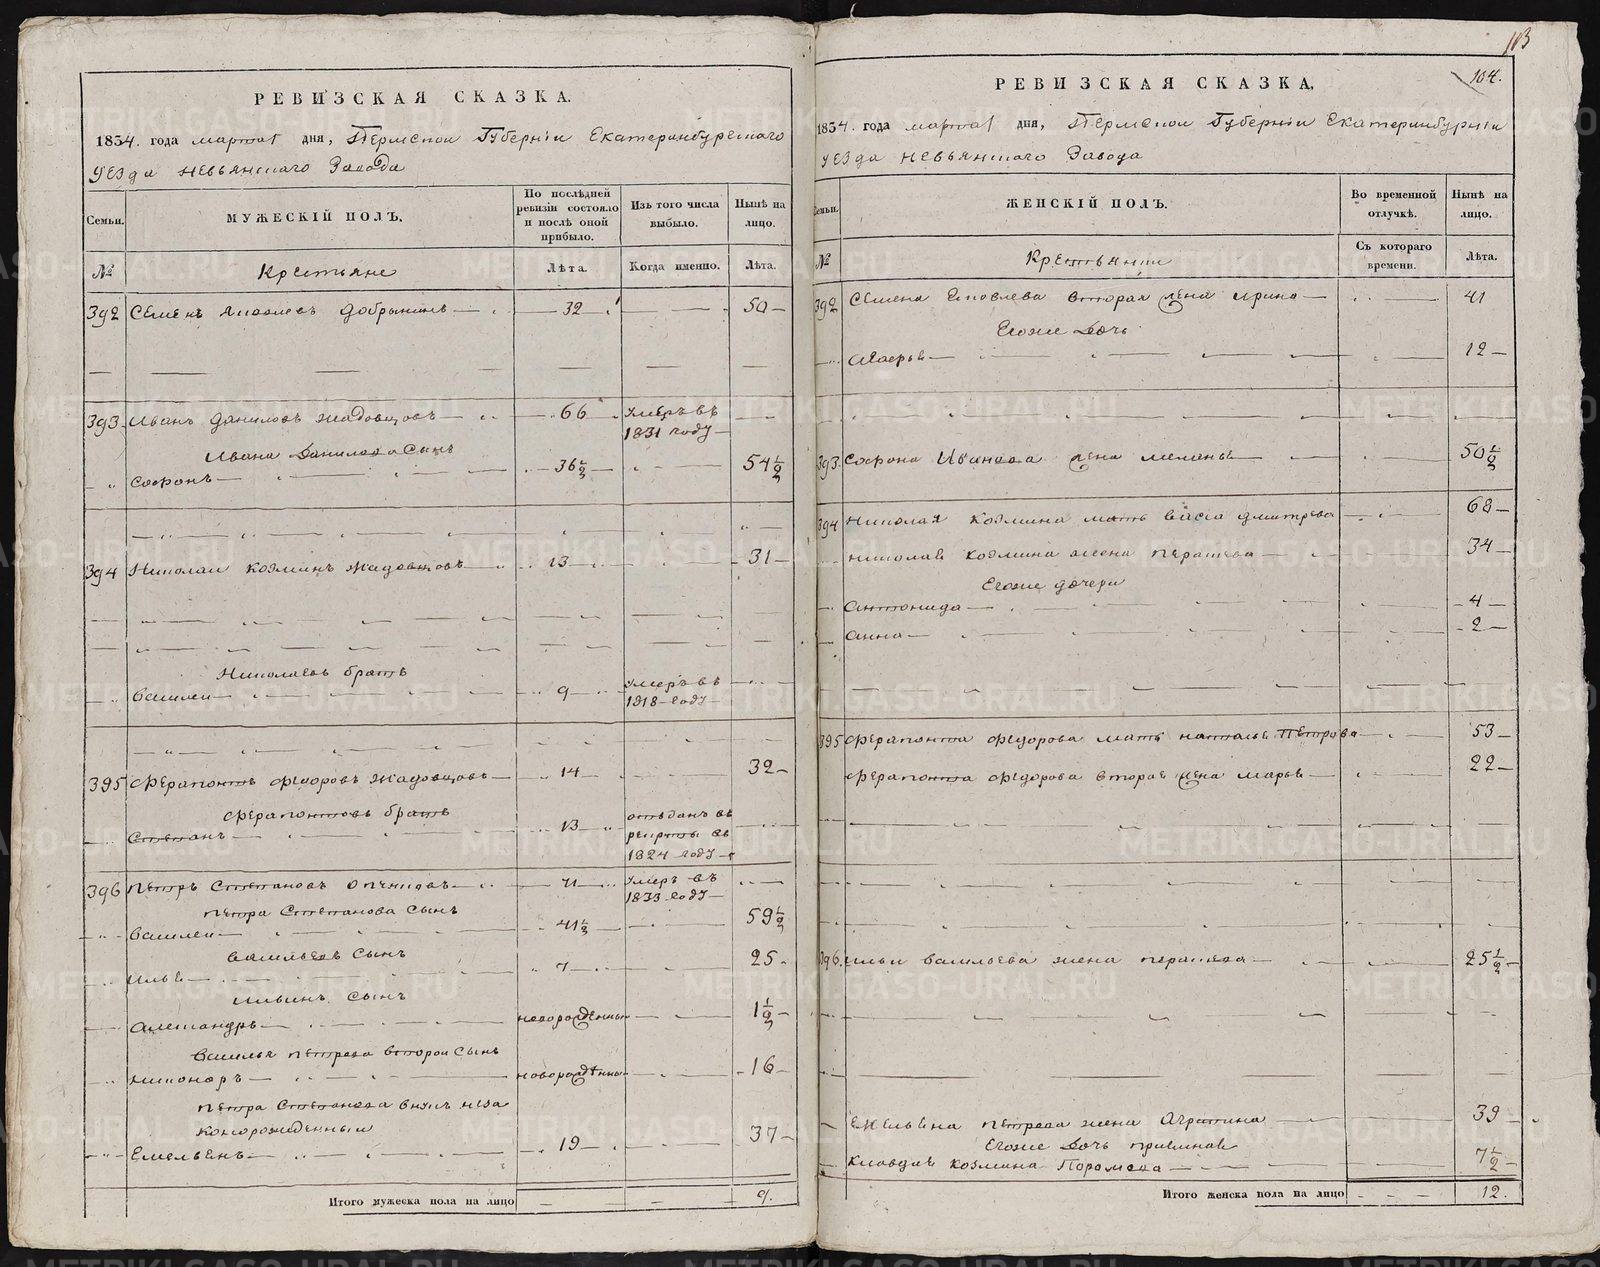 113
РЕВИЗСКАЯ СКАЗКА.
1834. года марта 1 дня, Пермской Губернiи Екатеринбургскаго
Уезда Невьянскаго Завода
Семьи.
МУЖЕСКІЙ ПОЛЪ.
По послѣдней ревизіи состояло и послѣ оной прибыло.
Изъ того числа выбыло.
Нынѣ на лицо.
№
Крестьяне
Лѣта.
Когда именно.
Лѣта.
392 Семенъ Яковлевъ Добрынинъ 32 50
393 Иванъ Даниловъ Жадовцовъ 66 умеръ въ 1831 году
Ивана Данилова Сынъ
Софронъ 36½ 54½
394 Николаи Козминъ Жадовцовъ 13 31
Николаевъ братъ
Василеи 9 умеръ въ 1818 году
395 Ферапонтъ Федоровъ Жадовцовъ 14 32
Ферапонтовъ братъ
Степанъ 13 отъданъ въ рекруты въ 1824 году
396 Петръ Степановъ 71 умеръ въ 1833 году
Петра Степанова Сынъ
Василеи 41½ 59½
Васильевъ Сынъ
Илья 7 25
Ильинъ Сынъ
Александръ новорожденны 1½
Василья Петрова второи Сынъ
Никоноръ новорожденны 16
Петра Степанова внукъ неза
коннорожденныи
Емельянъ 19 37
Итого мужеска пола на лицо 9.
104.
РЕВИЗСКАЯ СКАЗКА,
1834. года марта 1 дня, Пермскои Губернiи Екатеринбургскаго
Уезда Невьянскаго Завода
Семьи.
ЖЕНСКІЙ ПОЛЪ.
Во временной отлучкѣ.
Нынѣ на лицо.
№
Крестьянки
Съ котораго времени.
Лѣта.
392 Семена Яковлева вторая жена Ирина 41
Егоже дочь
Марья 12
393 Софрона Иванова жена 50½
394 Николая Козмина мать Васса Дмитрева 68
Николая Козмина жена Парасковья 34
Егоже дочери
Антонида 4
Анна 2
395 Ферапонта Федорова мать Наталья Петрова 53
Ферапонта Федорова вторая жена Марья 22
396. Ильи Васильева жена Парасковья 25½
Емельяна Петрова жена Аграпина 39
Егоже дочь приемная
Клавдия Козмина 7½
Итого женска пола на лицо 12.
METRIKI.GASO-URAL.RU